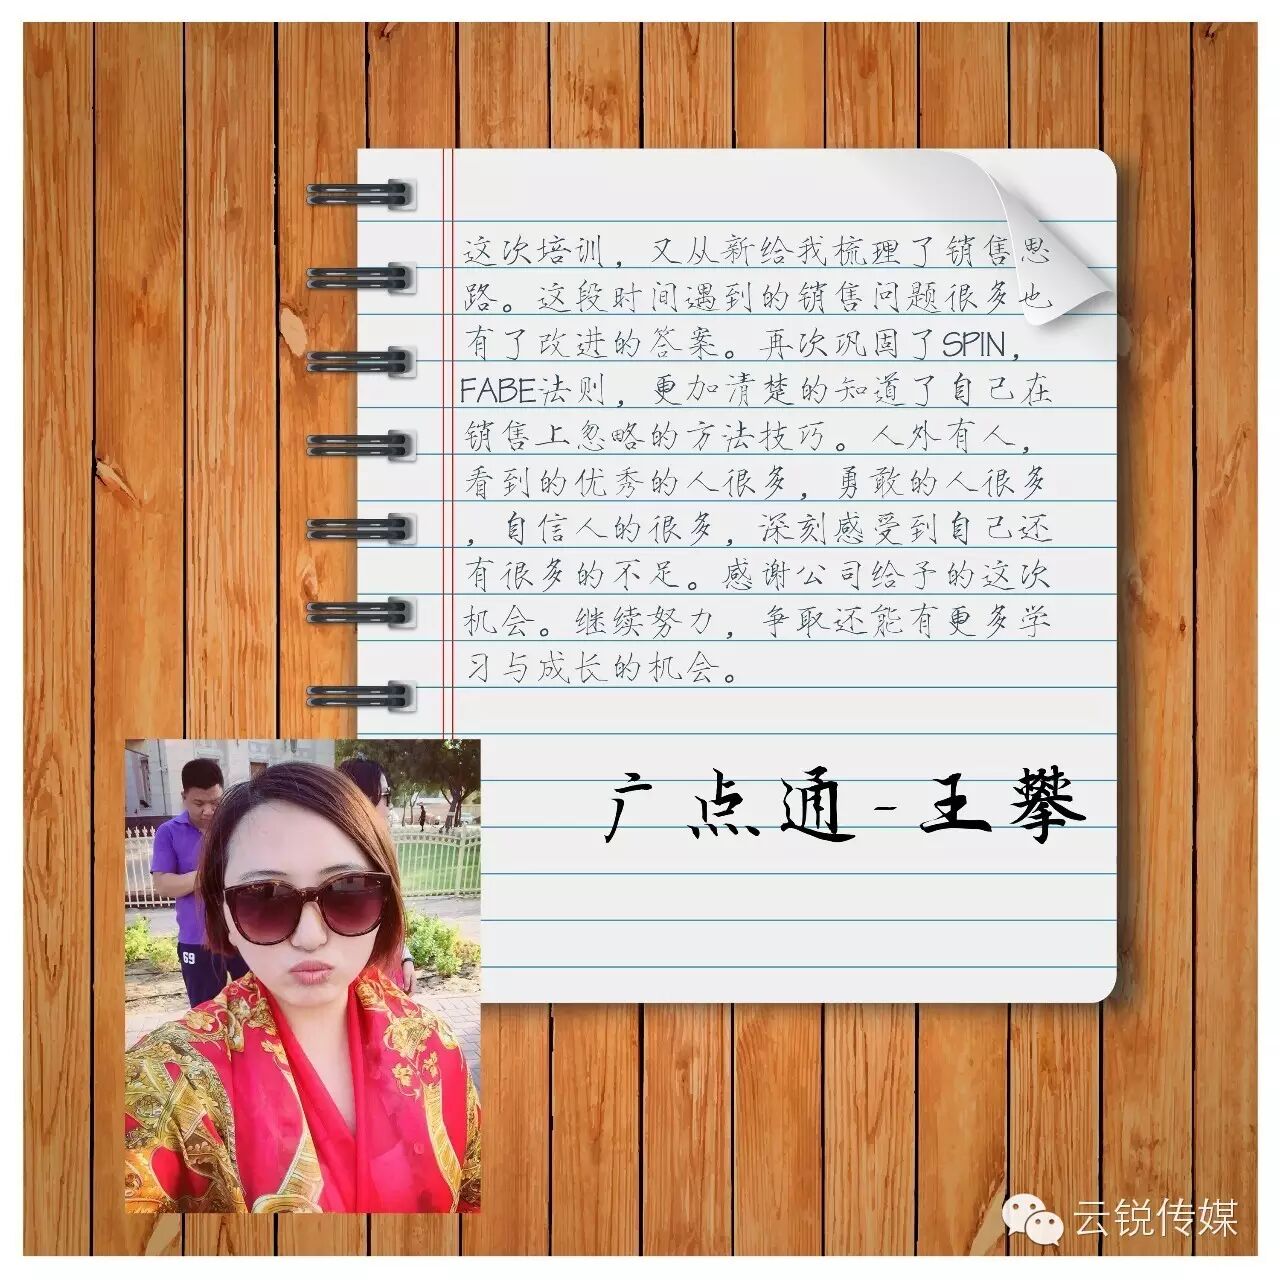 这次培训，又从新给我梳理了销售思
路。这段时间遇到的销售问题很多也
有了改进的答案。再次巩固了SPIN，
FABE法则，更加清楚的知道了自己在
销售上忽略的方法技巧。人外有人，
看到的优秀的人很多，勇敢的人很多
，自信人的很多，深刻感受到自己还
有很多的不足。感谢公司给予的这次
机会。继续努力，争取还能有更多学
习与成长的机会。
广点通-王攀
69
云锐传媒